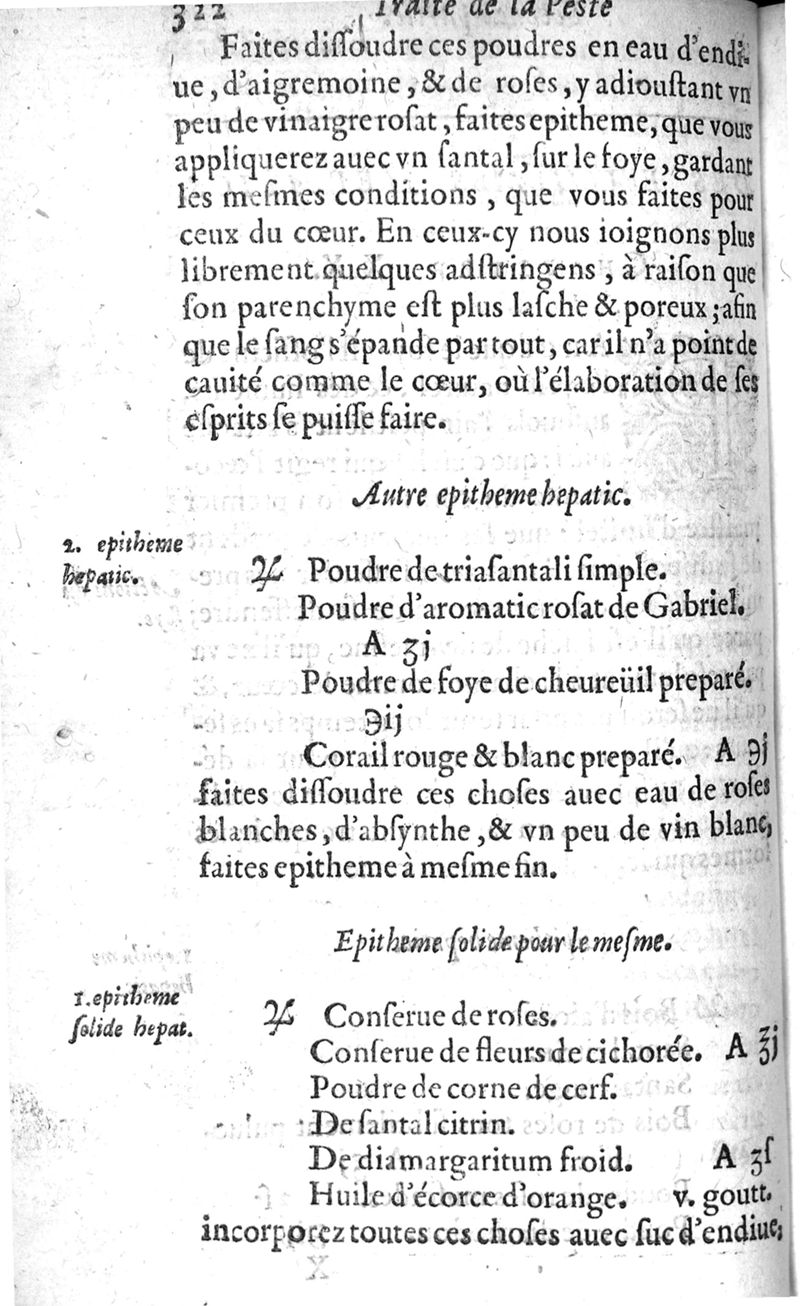 322 Traité de la Peste
Faites dissoudre ces poudres en eau d'endi-
ue, d'aigremoine, & de roses, y adioustant vn
peu de vinaigre rosat, faites epitheme, que vous
appliquerez auec vn santal, sur le foye, gardant
les mesmes conditions, que vous faites pour
ceux du cœur. En ceux-cy nous ioignons plus
librement quelques adstringens, à raison que
son parenchyme est plus lasche & poreux; afin
que le sang s'épande par tout, car il n'a point de
cauité comme le cœur, où l'élaboration de ses
esprits se puisse faire.
Autre epitheme hepatic.
2. epitheme
hepatic.
♃ Poudre de triasantali simple.
Poudre d'aromatic rosat de Gabriel.
A ʒj
Poudre de foye de cheureüil preparé.
℈ij
Corail rouge & blanc preparé. A ℈j
faites dissoudre ces choses auec eau de roses
blanches, d'absynthe, & vn peu de vin blanc,
faites epitheme à mesme fin.
Epitheme solide pour le mesme.
1. epitheme
solide hepat.
♃ Conserue de roses.
Conserue de fleurs de cichorée. A ℥j
Poudre de corne de cerf.
De santal citrin.
De diamargaritum froid. A ʒſ
Huile d'écorce d'orange. v. goutt.
incorporez toutes ces choses auec suc d'endiue;